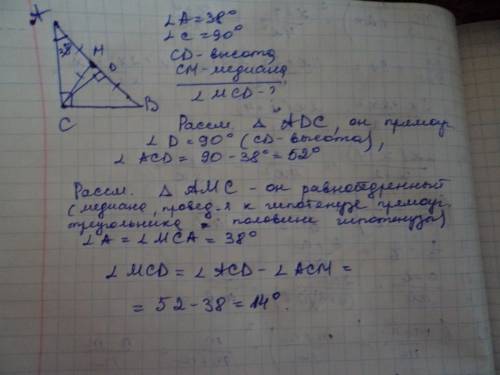 A
38°
М
D
C
B
∠A = 38°
∠C = 90°
CD - высота
CM - медиана
∠MCD - ?
Рассм. △ ADC, он прямоуг.
∠D = 90° (CD - высота),
∠ACD = 90 - 38° = 52°
Рассм. △ AMC - он равнобедренный
(медиана, провед-я к гипотенузе прямоуг.
треугольника = половине гипотенузы)
∠A = ∠MCA = 38°
∠MCD = ∠ACD - ∠ACM =
= 52 - 38 = 14°.